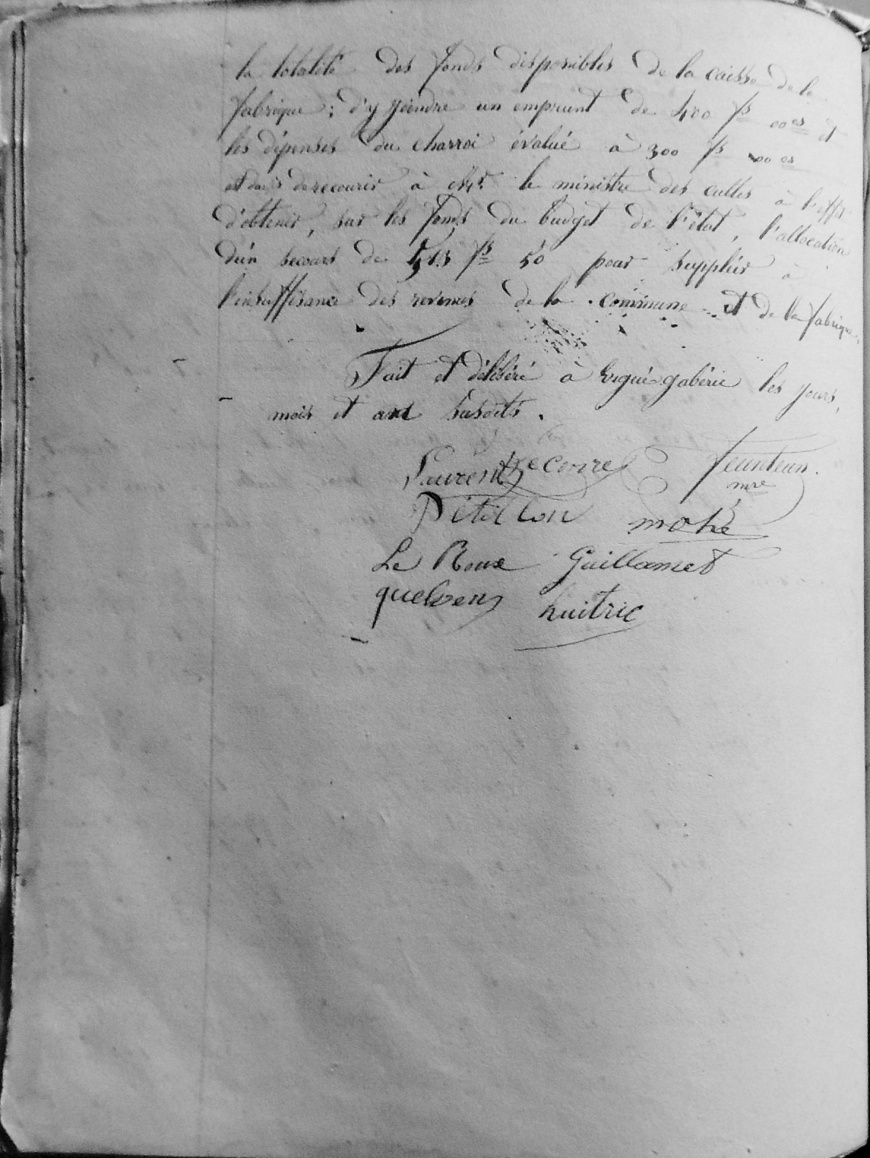 la totalité des fonds disponibles de la caisse de la
fabrique ; d'y joindre un emprunt de 400 fs 00 cs et
les dépenses du charroi évalué à 300 fs 00 cs
de recourir à Mr le ministre des cultes à l'effet
d'obtenir, sur les fonds du budget de l'état, l'allocation
d'un secours de 513 fs 50 pour suppléer à
l'insuffisance des revenus de la commune et de la fabrique.
Fait et délibéré à Ergué gabéric les jours,
mois et an susdits.
Laurent Le Corre feunteun
mre
Pétillon mahé
Le Roux Guillamet
quelven huitric